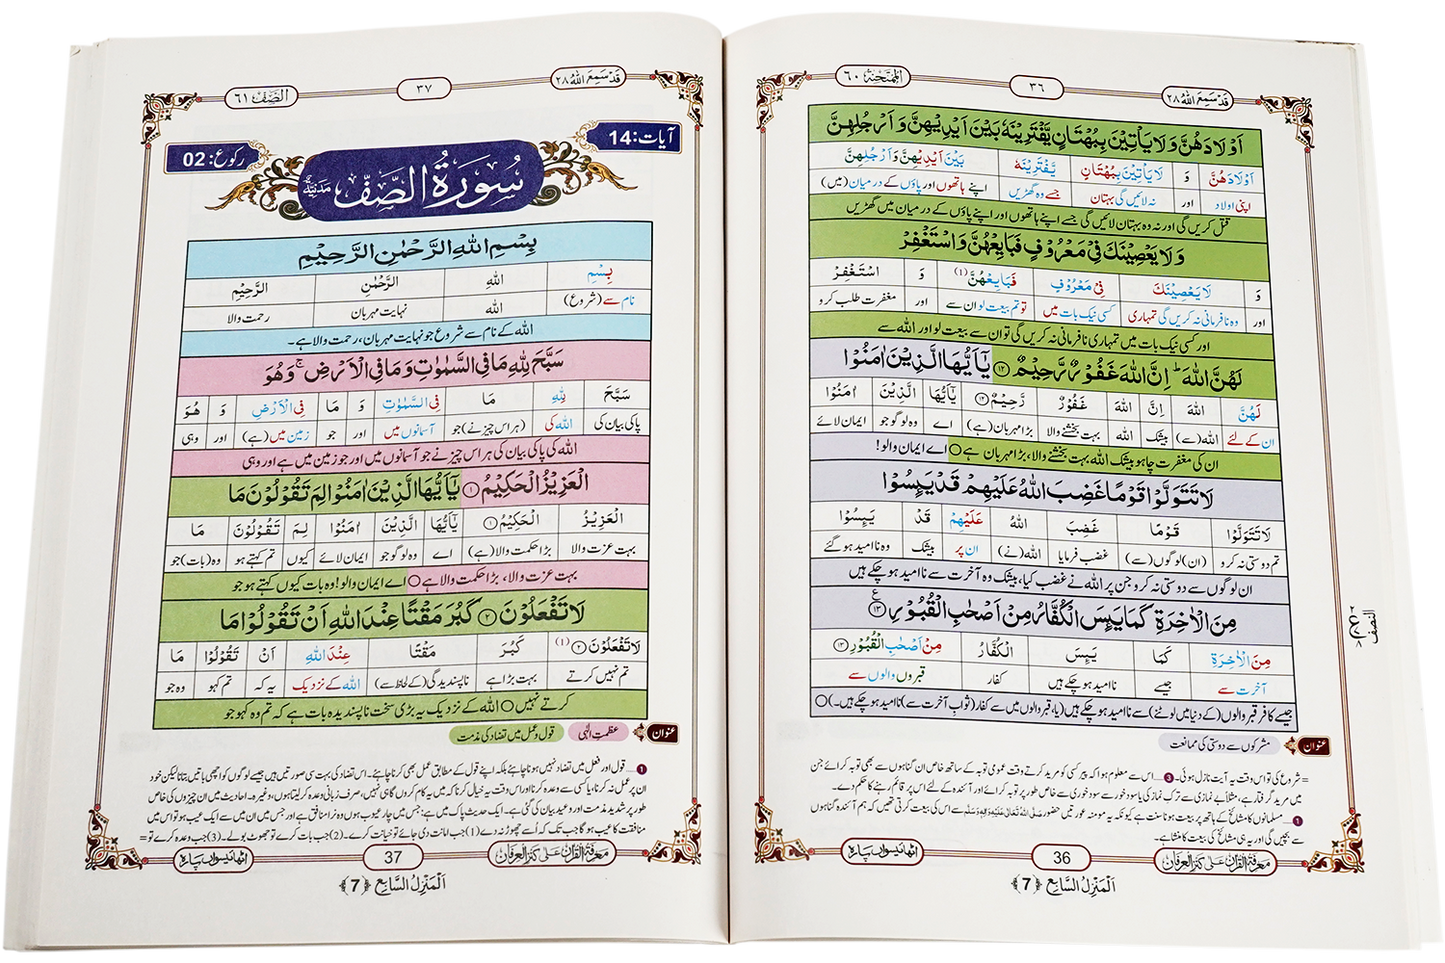 قَدْ سَمِعَ اللّٰهُ ٢٨
٣٦
الْمُمْتَحِنَة ٦٠
اَوْلَادَهُنَّ وَ لَا یَاْتِیْنَ بِبُهْتَانٍ یَّفْتَرِیْنَهٗ بَیْنَ اَیْدِیْهِنَّ وَ اَرْجُلِهِنَّ
اَوْلَادَهُنَّ وَ لَا یَاْتِیْنَ بِبُهْتَانٍ یَّفْتَرِیْنَهٗ بَیْنَ اَیْدِیْهِنَّ وَ اَرْجُلِهِنَّ
اپنی اولاد اور نہ لائیں گی بہتان جسے وہ گھڑیں اپنے ہاتھوں اور پاؤں کے درمیان (میں)
قتل کریں گی اور نہ وہ بہتان لائیں گی جسے اپنے ہاتھوں اور اپنے پاؤں کے درمیان میں گھڑیں
وَ لَا یَعْصِیْنَكَ فِیْ مَعْرُوْفٍ فَبَایِعْهُنَّ وَ اسْتَغْفِرْ
وَ لَا یَعْصِیْنَكَ فِیْ مَعْرُوْفٍ فَبَایِعْهُنَّ (١) وَ اسْتَغْفِرْ
اور وہ نافرمانی نہ کریں گی تمہاری کسی نیک بات میں تو تم بیعت لو ان سے اور مغفرت طلب کرو
اور کسی نیک بات میں تمہاری نافرمانی نہ کریں گی تو ان سے بیعت لو اور اللہ سے
لَهُنَّ اللّٰهَؕ اِنَّ اللّٰهَ غَفُوْرٌ رَّحِیْمٌ ١٢ یٰۤاَیُّهَا الَّذِیْنَ اٰمَنُوْا
لَهُنَّ اللّٰهَ اِنَّ اللّٰهَ غَفُوْرٌ رَّحِیْمٌ ١٢ یٰۤاَیُّهَا الَّذِیْنَ اٰمَنُوْا
ان کے لئے اللہ (سے) بیشک اللہ بہت بخشنے والا بڑا مہربان (ہے) اے وہ لوگو جو ایمان لائے
ان کی مغفرت چاہو بیشک اللہ بہت بخشنے والا، بڑا مہربان ہے ○ اے ایمان والو!
لَا تَتَوَلَّوْا قَوْمًا غَضِبَ اللّٰهُ عَلَیْهِمْ قَدْ یَىِٕسُوْا
لَا تَتَوَلَّوْا قَوْمًا غَضِبَ اللّٰهُ عَلَیْهِمْ قَدْ یَىِٕسُوْا
تم دوستی نہ کرو (ان) لوگوں (سے) غضب فرمایا اللہ (نے) ان پر بیشک وہ ناامید ہو گئے
ان لوگوں سے دوستی نہ کرو جن پر اللہ نے غضب کیا، بیشک وہ آخرت سے ناامید ہو چکے ہیں
مِنَ الْاٰخِرَةِ كَمَا یَىِٕسَ الْكُفَّارُ مِنْ اَصْحٰبِ الْقُبُوْرِ ١٣
مِنَ الْاٰخِرَةِ كَمَا یَىِٕسَ الْكُفَّارُ مِنْ اَصْحٰبِ الْقُبُوْرِ ١٣
آخرت سے جیسے ناامید ہو چکے ہیں کفار قبروں والوں سے
جیسے کافر قبر والوں (کے دنیا میں لوٹنے) سے ناامید ہو چکے ہیں (یا، قبر والوں میں سے کفار (ثوابِ آخرت سے) ناامید ہو چکے ہیں۔) ○
عنوان مشرکوں سے دوستی کی ممانعت
= شروع کی تو اس وقت یہ آیت نازل ہوئی۔ 3 ... اس سے معلوم ہوا کہ پیر کسی کو مرید کرتے وقت عمومی توبہ کے ساتھ خاص ان گناہوں سے بھی توبہ کرائے جن
میں مرید گرفتار ہے، مثلاً بے نمازی سے ترکِ نماز کی یا سود خور سے سود خوری سے خاص طور پر توبہ کرائے اور آئندہ کے لئے اس پر قائم رہنے کا حکم دے۔
1 ... مسلمانوں کا مشائخ کے ہاتھ پر بیعت ہونا سنت ہے کیونکہ یہ مومنہ عورتیں حضور صَلَّی اللہُ تَعَالٰی عَلَیْہِ وَاٰلِہٖ وَسَلَّمَ سے اس کی بیعت کرتی تھیں کہ ہم آئندہ گناہوں
سے بچیں گی اور یہی مشائخ کی بیعت کا منشا ہے۔
معرفۃ القرآن علیٰ کنز العرفان
36
اٹھائیسواں پارہ
اَلْمَنْزِلُ السَّابِع ﴿7﴾
النصف
قَدْ سَمِعَ اللّٰهُ ٢٨
٣٧
الصَّفّ ٦١
آیات: 14
سُوْرَۃُ الصَّفّ مَدَنِیَّۃٌ
رکوع: 02
بِسْمِ اللّٰهِ الرَّحْمٰنِ الرَّحِیْمِ
بِسْمِ اللّٰهِ الرَّحْمٰنِ الرَّحِیْمِ
نام سے (شروع) اللہ نہایت مہربان رحمت والا
اللہ کے نام سے شروع جو نہایت مہربان، رحمت والا ہے۔
سَبَّحَ لِلّٰهِ مَا فِی السَّمٰوٰتِ وَ مَا فِی الْاَرْضِۚ وَ هُوَ
سَبَّحَ لِلّٰهِ مَا فِی السَّمٰوٰتِ وَ مَا فِی الْاَرْضِ وَ هُوَ
پاکی بیان کی اللہ کی (ہر اس چیز نے) جو آسمانوں میں اور جو زمین میں (ہے) اور وہی
اللہ کی پاکی بیان کی ہر اس چیز نے جو آسمانوں میں اور جو زمین میں ہے اور وہی
الْعَزِیْزُ الْحَكِیْمُ ١ یٰۤاَیُّهَا الَّذِیْنَ اٰمَنُوْا لِمَ تَقُوْلُوْنَ مَا
الْعَزِیْزُ الْحَكِیْمُ ١ یٰۤاَیُّهَا الَّذِیْنَ اٰمَنُوْا لِمَ تَقُوْلُوْنَ مَا
بہت عزت والا بڑا حکمت والا (ہے) اے وہ لوگو جو ایمان لائے کیوں تم کہتے ہو وہ (بات) جو
بہت عزت والا، بڑا حکمت والا ہے ○ اے ایمان والو! وہ بات کیوں کہتے ہو جو
لَا تَفْعَلُوْنَ ٢ كَبُرَ مَقْتًا عِنْدَ اللّٰهِ اَنْ تَقُوْلُوْا مَا
لَا تَفْعَلُوْنَ ٢ (١) كَبُرَ مَقْتًا عِنْدَ اللّٰهِ اَنْ تَقُوْلُوْا مَا
تم نہیں کرتے بہت بڑا ہے ناپسندیدگی (کے لحاظ سے) اللہ کے نزدیک یہ کہ تم کہو وہ جو
کرتے نہیں ○ اللہ کے نزدیک یہ بڑی سخت ناپسندیدہ بات ہے کہ تم وہ کہو جو
عنوان عظمتِ الٰہی قول و عمل میں تضاد کی مذمت
1 ... قول اور فعل میں تضاد نہیں ہونا چاہئے بلکہ اپنے قول کے مطابق عمل بھی کرنا چاہئے۔ اس تضاد کی بہت سی صورتیں ہیں جیسے لوگوں کو اچھی باتیں بتانا لیکن خود
ان پر عمل نہ کرنا، یا کسی سے وعدہ کرنا اور اس وقت یہ خیال کرنا کہ میں یہ کام کروں گا ہی نہیں، صرف زبانی وعدہ کر لیتا ہوں، وغیرہ۔ احادیث میں ان چیزوں کی خاص
طور پر شدید مذمت اور وعید بیان کی گئی ہے۔ ایک حدیث پاک میں ہے: جس میں چار عیوب ہوں وہ نرا منافق ہے اور جس میں ان میں سے ایک عیب ہو تو اس میں
منافقت کا عیب ہوگا جب تک کہ اُسے چھوڑ نہ دے (1) جب امانت دی جائے تو خیانت کرے۔ (2) جب بات کرے تو جھوٹ بولے۔ (3) جب وعدہ کرے تو =
معرفۃ القرآن علیٰ کنز العرفان
37
اٹھائیسواں پارہ
اَلْمَنْزِلُ السَّابِع ﴿7﴾